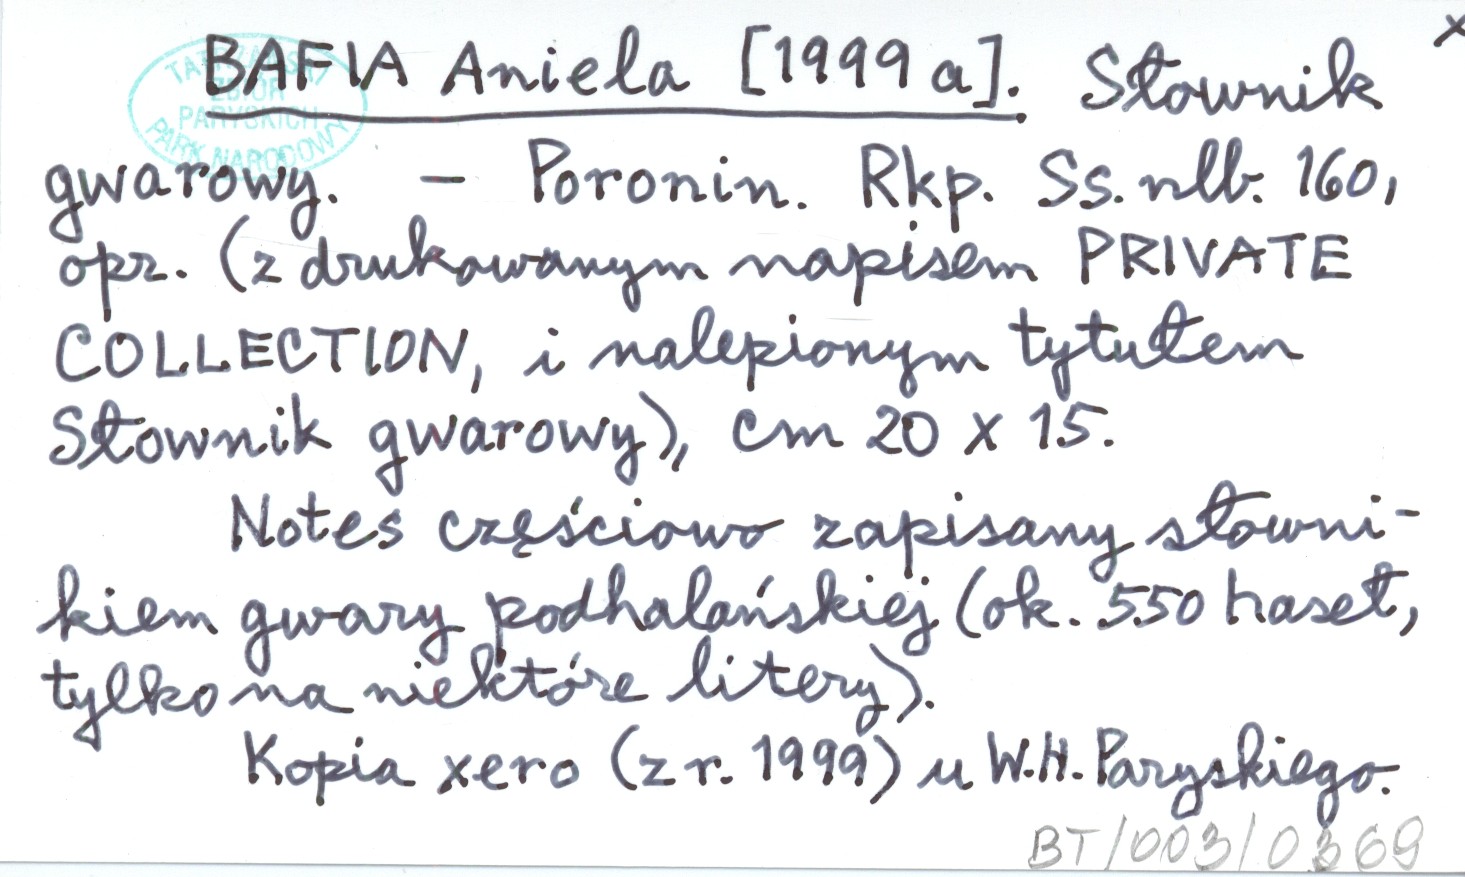 x
BAFIA Aniela [1999 a]. Słownik
gwarowy. – Poronin. Rkp. Ss. nlb. 160,
opr. (z drukowanym napisem PRIVATE
COLLECTION, i nalepionym tytułem
Słownik gwarowy), cm 20 x 15.
Notes częściowo zapisany słowni-
kiem gwary podhalańskiej (ok. 550 haseł,
tylko na niektóre litery).
Kopia xero (z r. 1999) u W.H. Paryskiego.
BT/003/0369
ZBIÓR
PARYSKICH
PARK NARODOWY